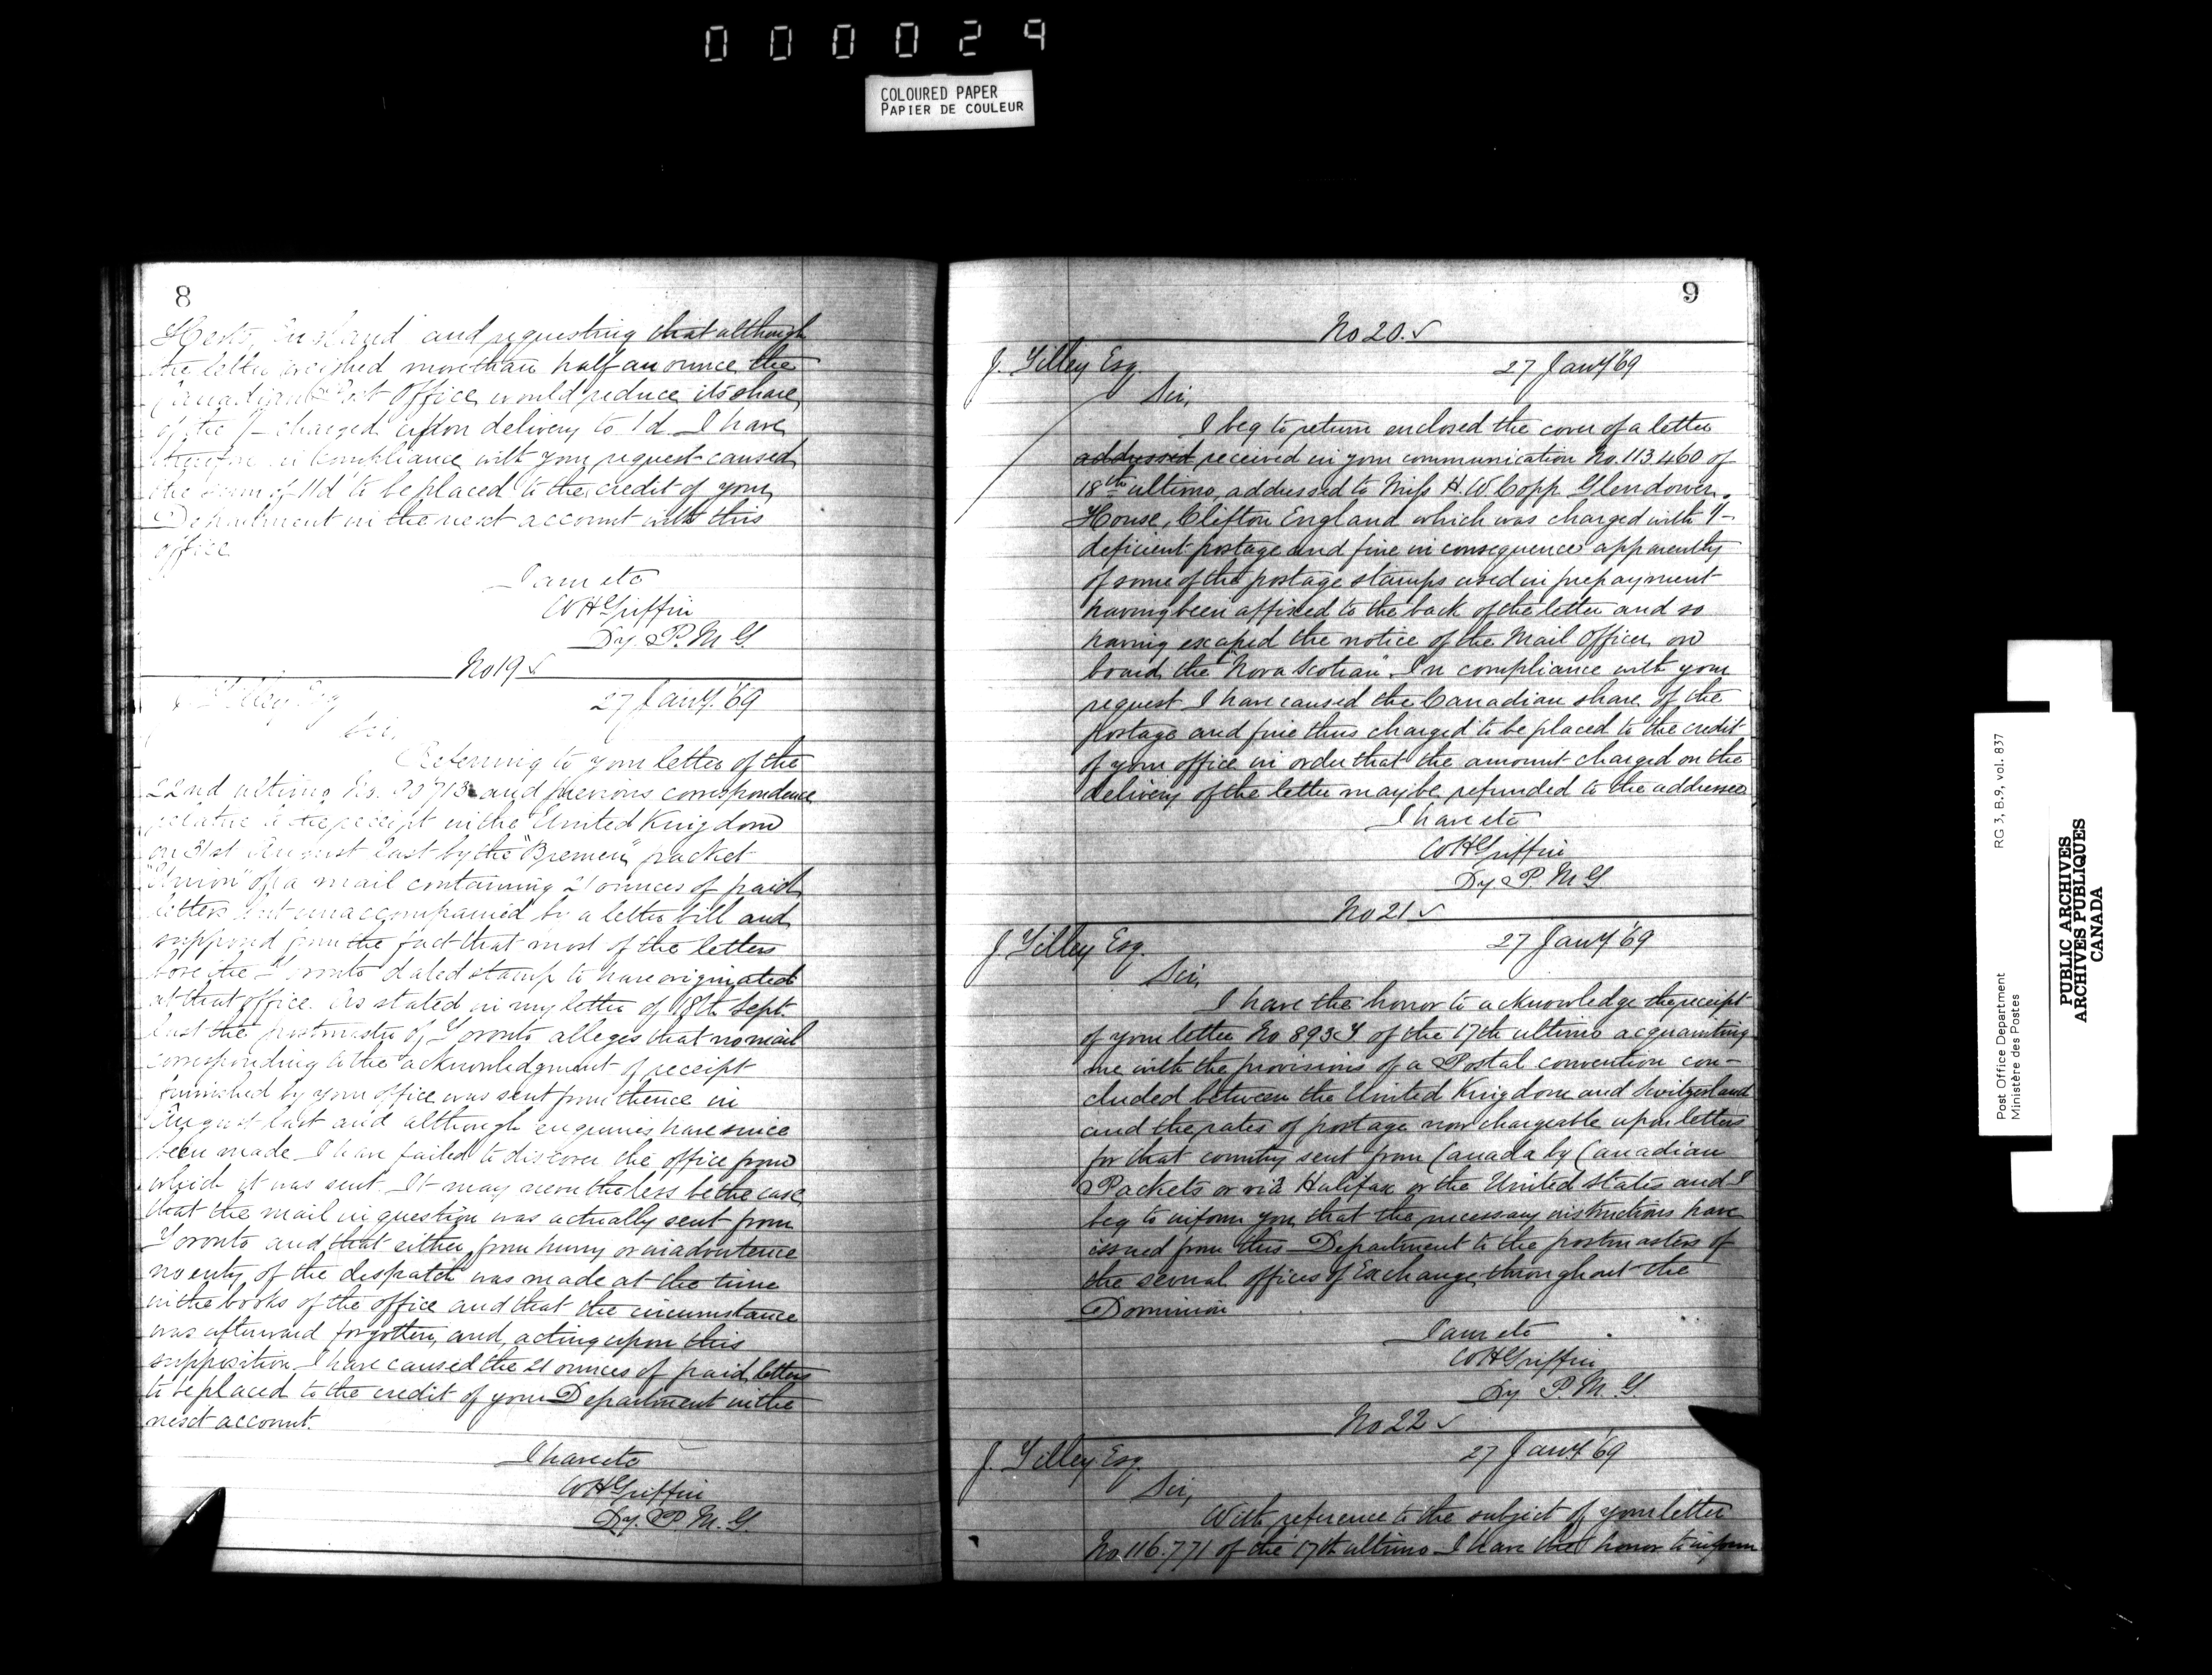 000029
COLOURED PAPER
PAPIER DE COULEUR
8
Herts, England" and requesting that although
the letter weighed more than half an ounce the
Canadian Post Office would reduce its share
of the 1/- charged upon delivery to 1d. I have
therefore in compliance with your request caused
the sum of 11d to be placed to the credit of your
Department in the next account with this
office
I am etc
W H Griffin
Dy. P. M. G.
No 19 ✓
J. Tilley Esq
27 Jany. '69
Sir,
Referring to your letter of the
22nd ultimo No. and previous correspondence
relative to the receipt in the United Kingdom
on 31st August last by the "Bremen" packet
"Union" of a mail containing 21 ounces of paid
letters but unaccompanied by a letter bill and
supposed from the fact that most of the letters
bore the Toronto dated stamp to have originated
at that office. As stated in my letter of 18th Sept.
last the postmaster of Toronto alleges that no mail
corresponding to the acknowledgment of receipt
furnished by your office was sent from thence in
August last and although enquiries have since
been made I have failed to discover the office from
which it was sent. It may nevertheless be the case
that the mail in question was actually sent from
Toronto and that either from hurry or inadvertence
no entry of the despatch was made at the time
in the books of the office and that the circumstance
was afterward forgotten, and, acting upon this
supposition I have caused the 21 ounces of paid letters
to be placed to the credit of your Department in the
next account.
I have etc
W H Griffin
Dy. P. M. G.
9
No 20. ✓
J. Tilley Esq.
27 Jany '69
Sir,
I beg to return enclosed the cover of a letter
addressed received in your communication No. 113.460 of
18th ultimo, addressed to Miss H. W Copp Glendower
House, Clifton England which was charged with 1/-
deficient postage and fine in consequence apparently
of some of the postage stamps used in prepayment
having been affixed to the back of the letter and so
having escaped the notice of the Mail Officer on
board the "Nova Scotian". In compliance with your
request I have caused the Canadian share of the
postage and fine thus charged to be placed to the credit
of your office in order that the amount charged on the
delivery of the letter may be refunded to the addressee
I have etc
W H Griffin
Dy. P. M G
No 21 ✓
J. Tilley Esq.
27 Jany '69
Sir,
I have the honor to acknowledge the receipt
of your letter No 893Y of the 17th ultimo acquainting
me with the provisions of a Postal convention con-
cluded between the United Kingdom and Switzerland
and the rates of postage now chargeable upon letters
for that country sent from Canada by Canadian
Packets or via Halifax or the United States and I
beg to inform you that the necessary instructions have
issued from this Department to the postmasters of
the several offices of Exchange throughout the
Dominion
I am etc
W H Griffin
Dy P. M. G.
No 22 ✓
J. Tilley Esq.
27 Jany '69
Sir,
With reference to the subject of your letter
No. 116.771 of the 17th ultimo I have the honor to inform
Post Office Department
Ministère des Postes
RG 3, B.9, vol. 837
PUBLIC ARCHIVES
ARCHIVES PUBLIQUES
CANADA